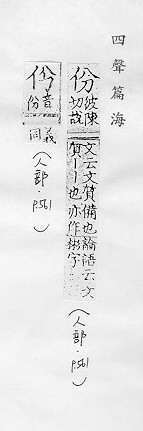 四聲篇海
份 彼陳
切說
文云文質備也論語云文
質丨丨也亦作彬字
(人部·p561)
音
份
義
同
(人部·p561)